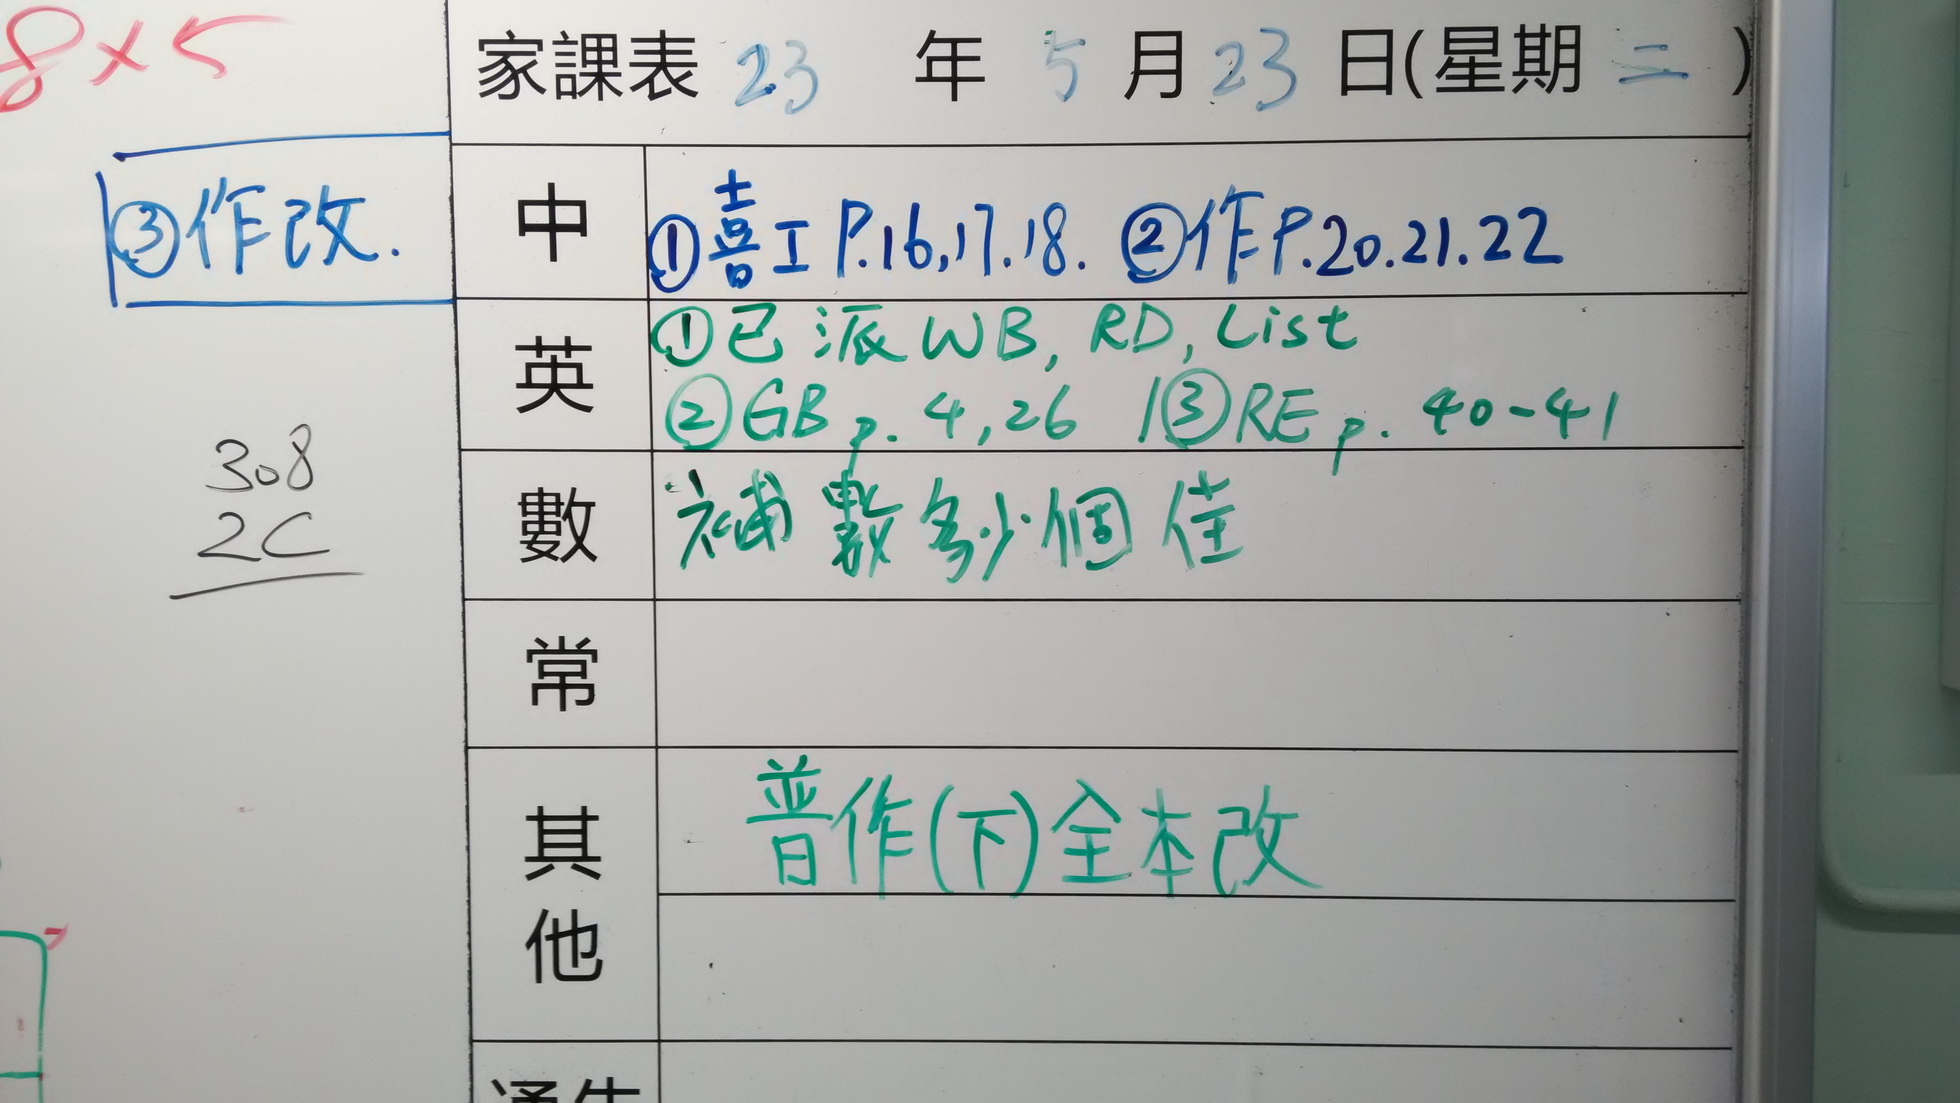 8×5
家課表 23 年 5 月 23 日(星期 二 )
③作改.
中 ①喜工 P.16,17.18. ②作P.20.21.22
英 ①已派 WB, RD, List
②GB p. 4,26 ③RE p. 40-41
308
2C
數 補數多少個佳
常
其他 普作(下)全本改
通告